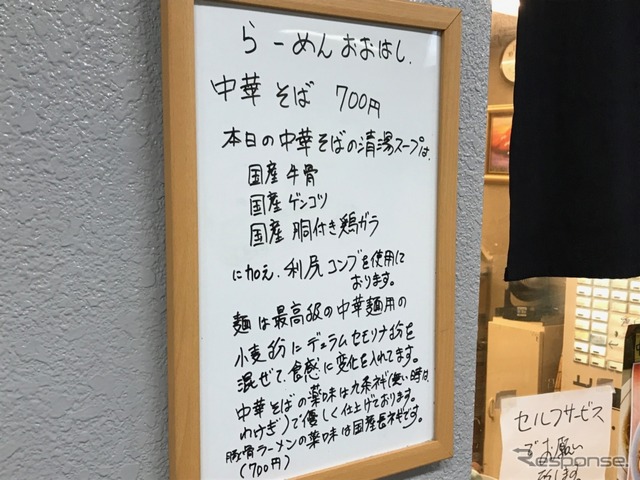 らーめん おおはし.
中華そば 700円
本日の中華そばの清湯スープは、
国産 牛骨
国産 ゲンコツ
国産 胴付き鶏ガラ
に加え、利尻コンブを使用して
おります。
麺は最高級の中華麺用の
小麦粉にデュラムセモリナ粉を
混ぜて、食感に変化を入れてます。
中華そばの薬味は九条ネギ(無い時は、
わけぎ)で優しく仕上げております。
豚骨ラーメンの薬味は国産長ネギです。
(700円)
セルフサービス
でお願い
します。
Response.